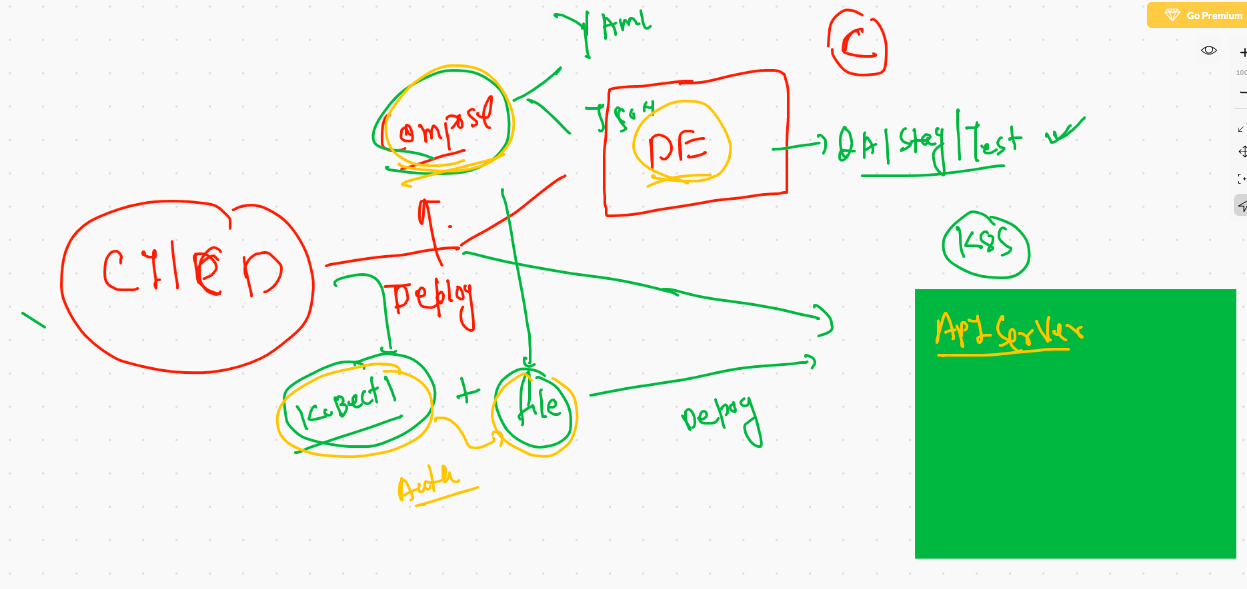 YAML
C
Go Premium
100
compose
JSON
DE
QA|Stag|Test
K8S
CI|CD
Deploy
API Server
Kubectl + file
Deploy
Auth